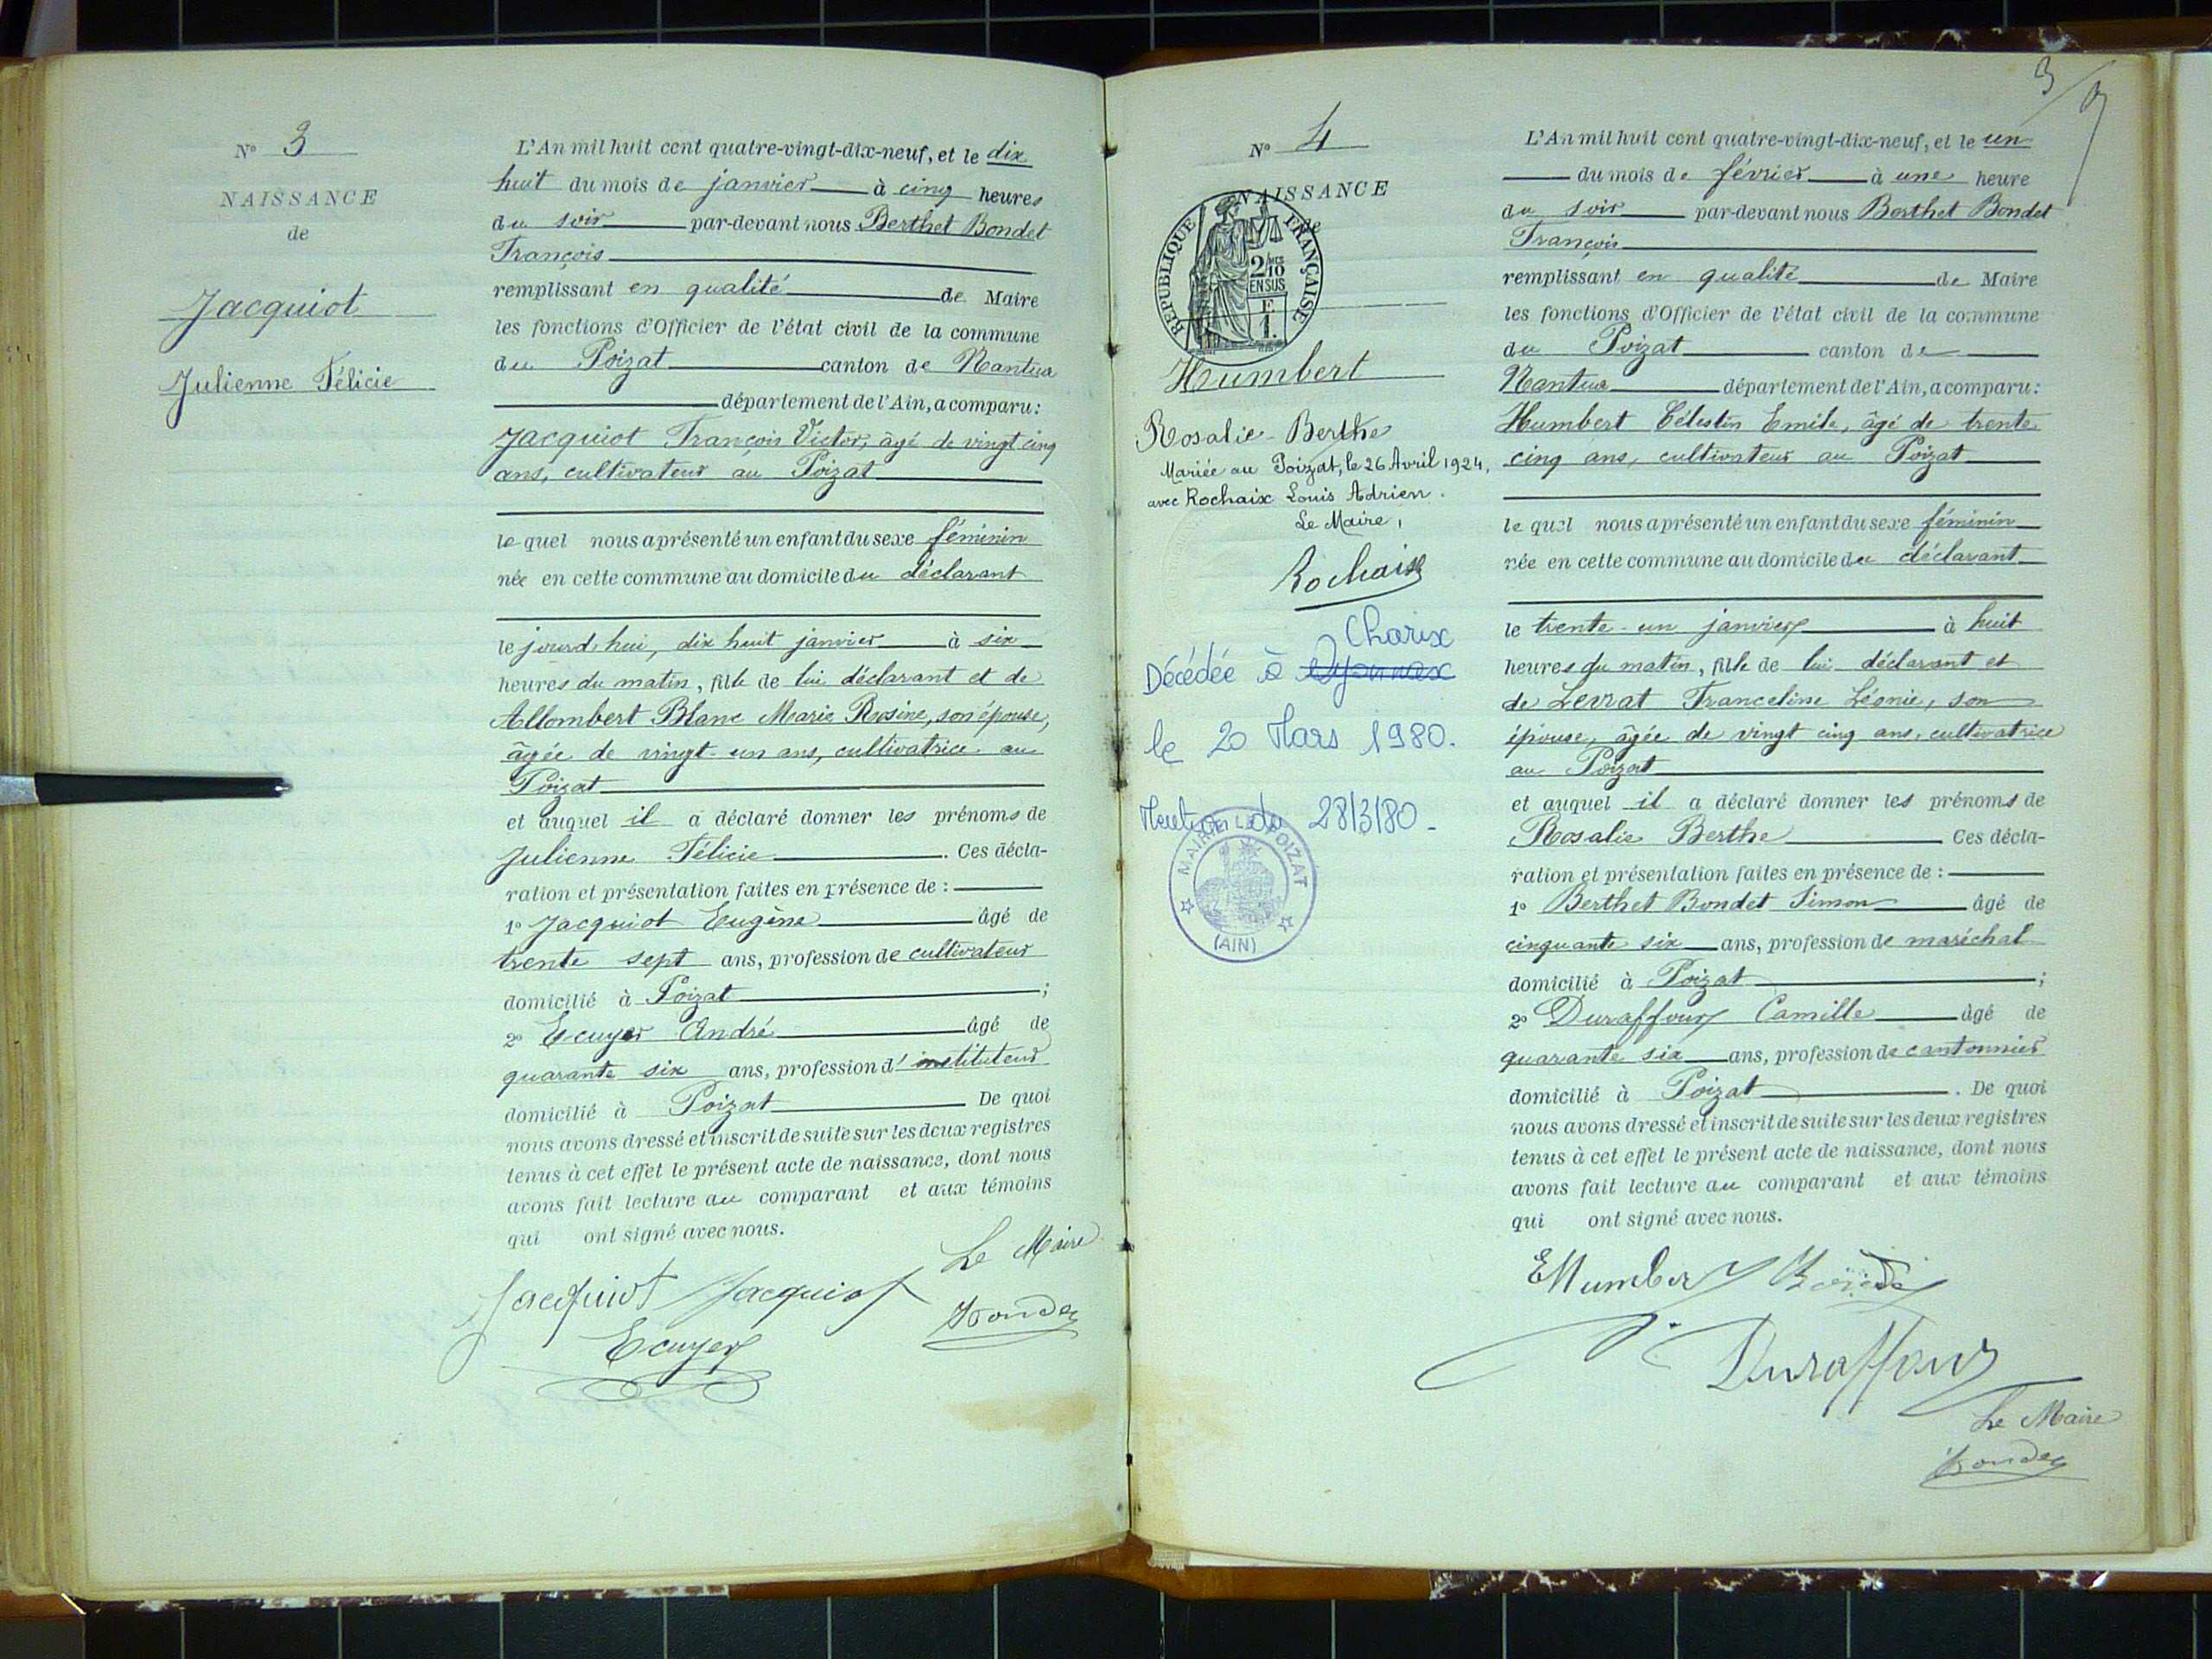 N° 3
NAISSANCE
de
Jacquiot
Julienne Félicie
L'An mil huit cent quatre-vingt-dix-neuf, et le dix
huit du mois de janvier à cinq heures
du soir par-devant nous Berthet Bondet
François
remplissant en qualité de Maire
les fonctions d'Officier de l'état civil de la commune
du Poizat canton de Nantua
département de l'Ain, a comparu :
Jacquiot François Victor, âgé de vingt cinq
ans, cultivateur au Poizat
le quel nous a présenté un enfant du sexe féminin
née en cette commune au domicile du déclarant
le jourd'hui, dix huit janvier à six
heures du matin, fille de lui déclarant et de
Allombert Blanc Marie Rosine, son épouse,
âgée de vingt-un ans, cultivatrice au
Poizat
et auquel il a déclaré donner les prénoms de
Julienne Félicie. Ces décla-
ration et présentation faites en présence de :
1° Jacquiot Eugène âgé de
trente sept ans, profession de cultivateur
domicilié à Poizat ;
2° Ecuyer André âgé de
quarante six ans, profession d'instituteur
domicilié à Poizat De quoi
nous avons dressé et inscrit de suite sur les deux registres
tenus à cet effet le présent acte de naissance, dont nous
avons fait lecture au comparant et aux témoins
qui ont signé avec nous.
Le Maire
Jacquiot Jacquiot
Bondet
Ecuyer
3
N° 4
NAISSANCE
de
RÉPUBLIQUE FRANÇAISE
2/10
EN SUS
E
1.
Humbert
Rosalie-Berthe
Mariée au Poizat, le 26 Avril 1924,
avec Rochaix Louis Adrien.
Le Maire,
Rochaix
Charix
Décédée à Oyonnax
le 20 Mars 1980.
Mention du 28/3/80.
MAIRIE LE POIZAT
(AIN)
L'An mil huit cent quatre-vingt-dix-neuf, et le un
du mois de février à une heure
du soir par-devant nous Berthet Bondet
François
remplissant en qualité de Maire
les fonctions d'Officier de l'état civil de la commune
du Poizat canton de
Nantua département de l'Ain, a comparu :
Humbert Célestin Emile, âgé de trente
cinq ans, cultivateur au Poizat
le quel nous a présenté un enfant du sexe féminin
née en cette commune au domicile du déclarant
le trente-un janvier à huit
heures du matin, fille de lui déclarant et
de Levrat Franceline Léonie, son
épouse, âgée de vingt cinq ans, cultivatrice
au Poizat
et auquel il a déclaré donner les prénoms de
Rosalie Berthe Ces décla-
ration et présentation faites en présence de :
1° Berthet Bondet Simon âgé de
cinquante six ans, profession de maréchal
domicilié à Poizat ;
2° Duraffour Camille âgé de
quarante six ans, profession de cantonnier
domicilié à Poizat. De quoi
nous avons dressé et inscrit de suite sur les deux registres
tenus à cet effet le présent acte de naissance, dont nous
avons fait lecture au comparant et aux témoins
qui ont signé avec nous.
E Humbert
Duraffour
Le Maire
Bondet